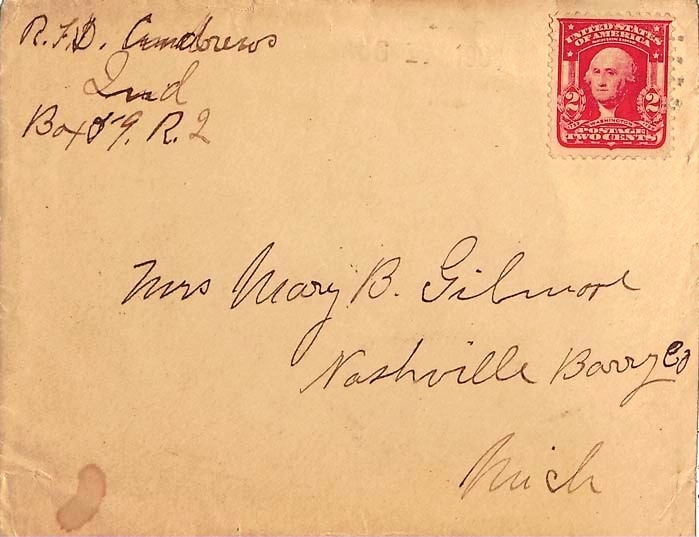 R.F.D. Andrews
Ind
Box 59. R. 2
UNITED STATES
OF AMERICA
SERIES 1902
2 2
WASHINGTON
POSTAGE
TWO CENTS
Mrs Mary B. Gilmore
Nashville Barry Co
Mich